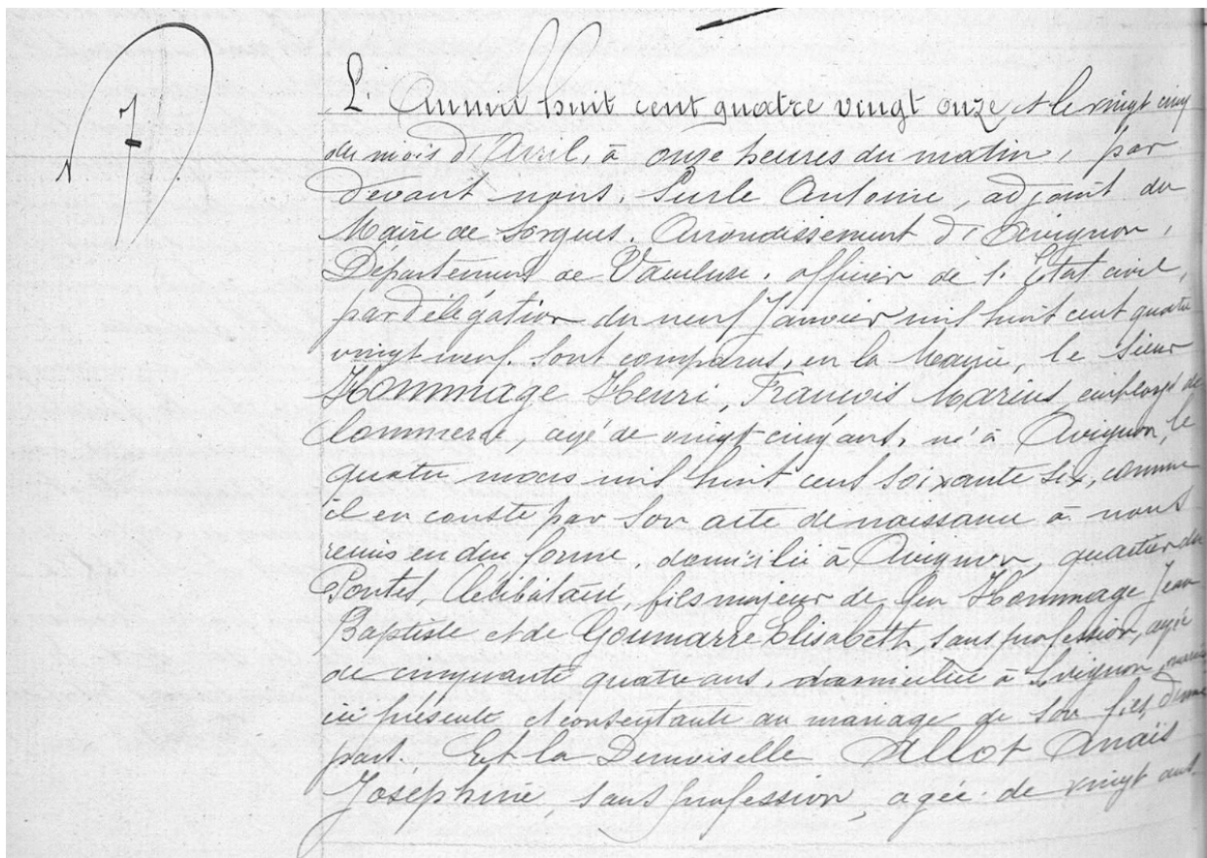 7
L'An mil huit cent quatre vingt onze, et le vingt cinq
du mois d'Avril, à onze heures du matin, par
devant nous, Antoine, adjoint du
Maire de Sorgues, Arrondissement d'Avignon,
Département de Vaucluse, officier de l'Etat civil,
par délégation du neuf Janvier mil huit cent quatre
vingt neuf. Sont comparus, en la Mairie, le Sieur
Hommage Henri, François Marius, employé de
Commerce, agé de vingt cinq ans, né à Avignon, le
quatre mars mil huit cent soixante six, comme
il en conste par son acte de naissance à nous
remis en due forme, domicilié à Avignon, quartier du
Pontet, Célibataire, fils majeur de feu Hommage Jean
Baptiste et de Goumarre Elisabeth, sans profession, agée
de cinquante quatre ans, domiciliée à Avignon,
ici présente et consentante au mariage de son fils, d'une
part. Et la Demoiselle Allot Anaïs
Joséphine, sans profession, agée de vingt ans